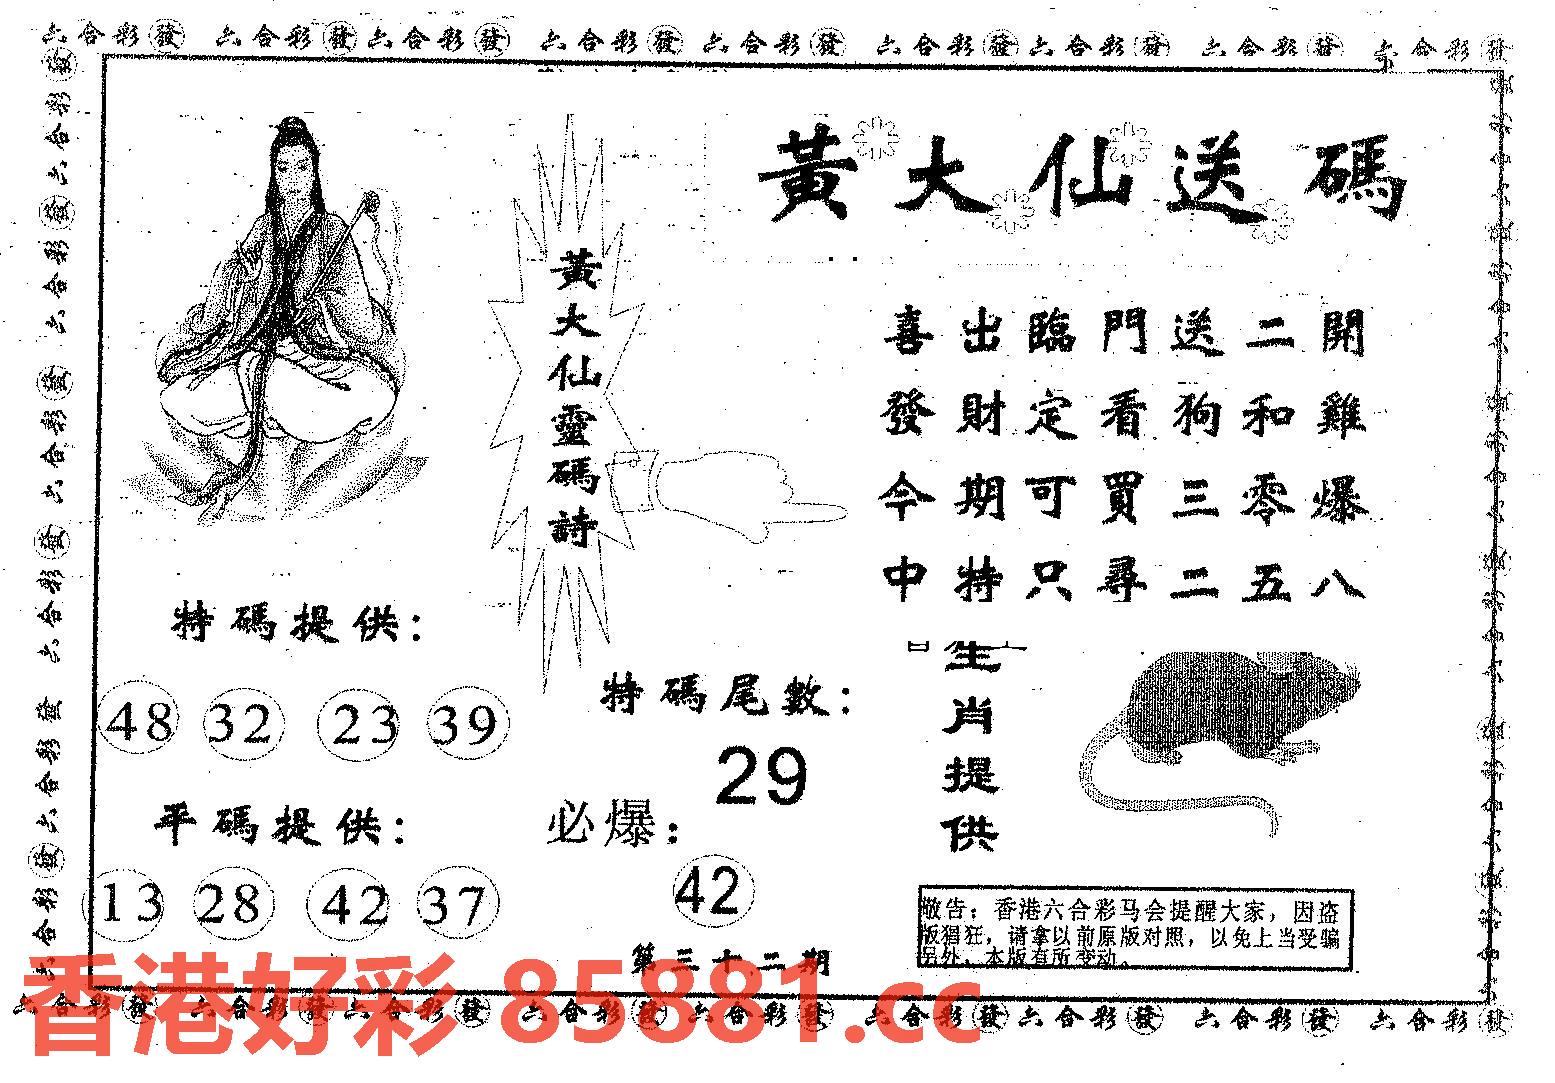 六合彩發 六合彩發 六合彩發 六合彩發 六合彩發 六合彩發 六合彩發 六合彩發 六合彩發
黃大仙送碼
黃大仙靈碼詩
喜出臨門送二開
發財定看狗和雞
今期可買三零爆
中特只尋二五八
特碼提供：
48 32 23 39
平碼提供：
13 28 42 37
特碼尾數：
29
必爆：
42
第三十二期
生肖提供
敬告：香港六合彩马会提醒大家，因盗
版猖狂，请拿以前原版对照，以免上当受骗
另外，本版有所变动。
香港好彩 85881.cc
六合彩發 六合彩發 六合彩發 六合彩發 六合彩發 六合彩發 六合彩發 六合彩發 六合彩發